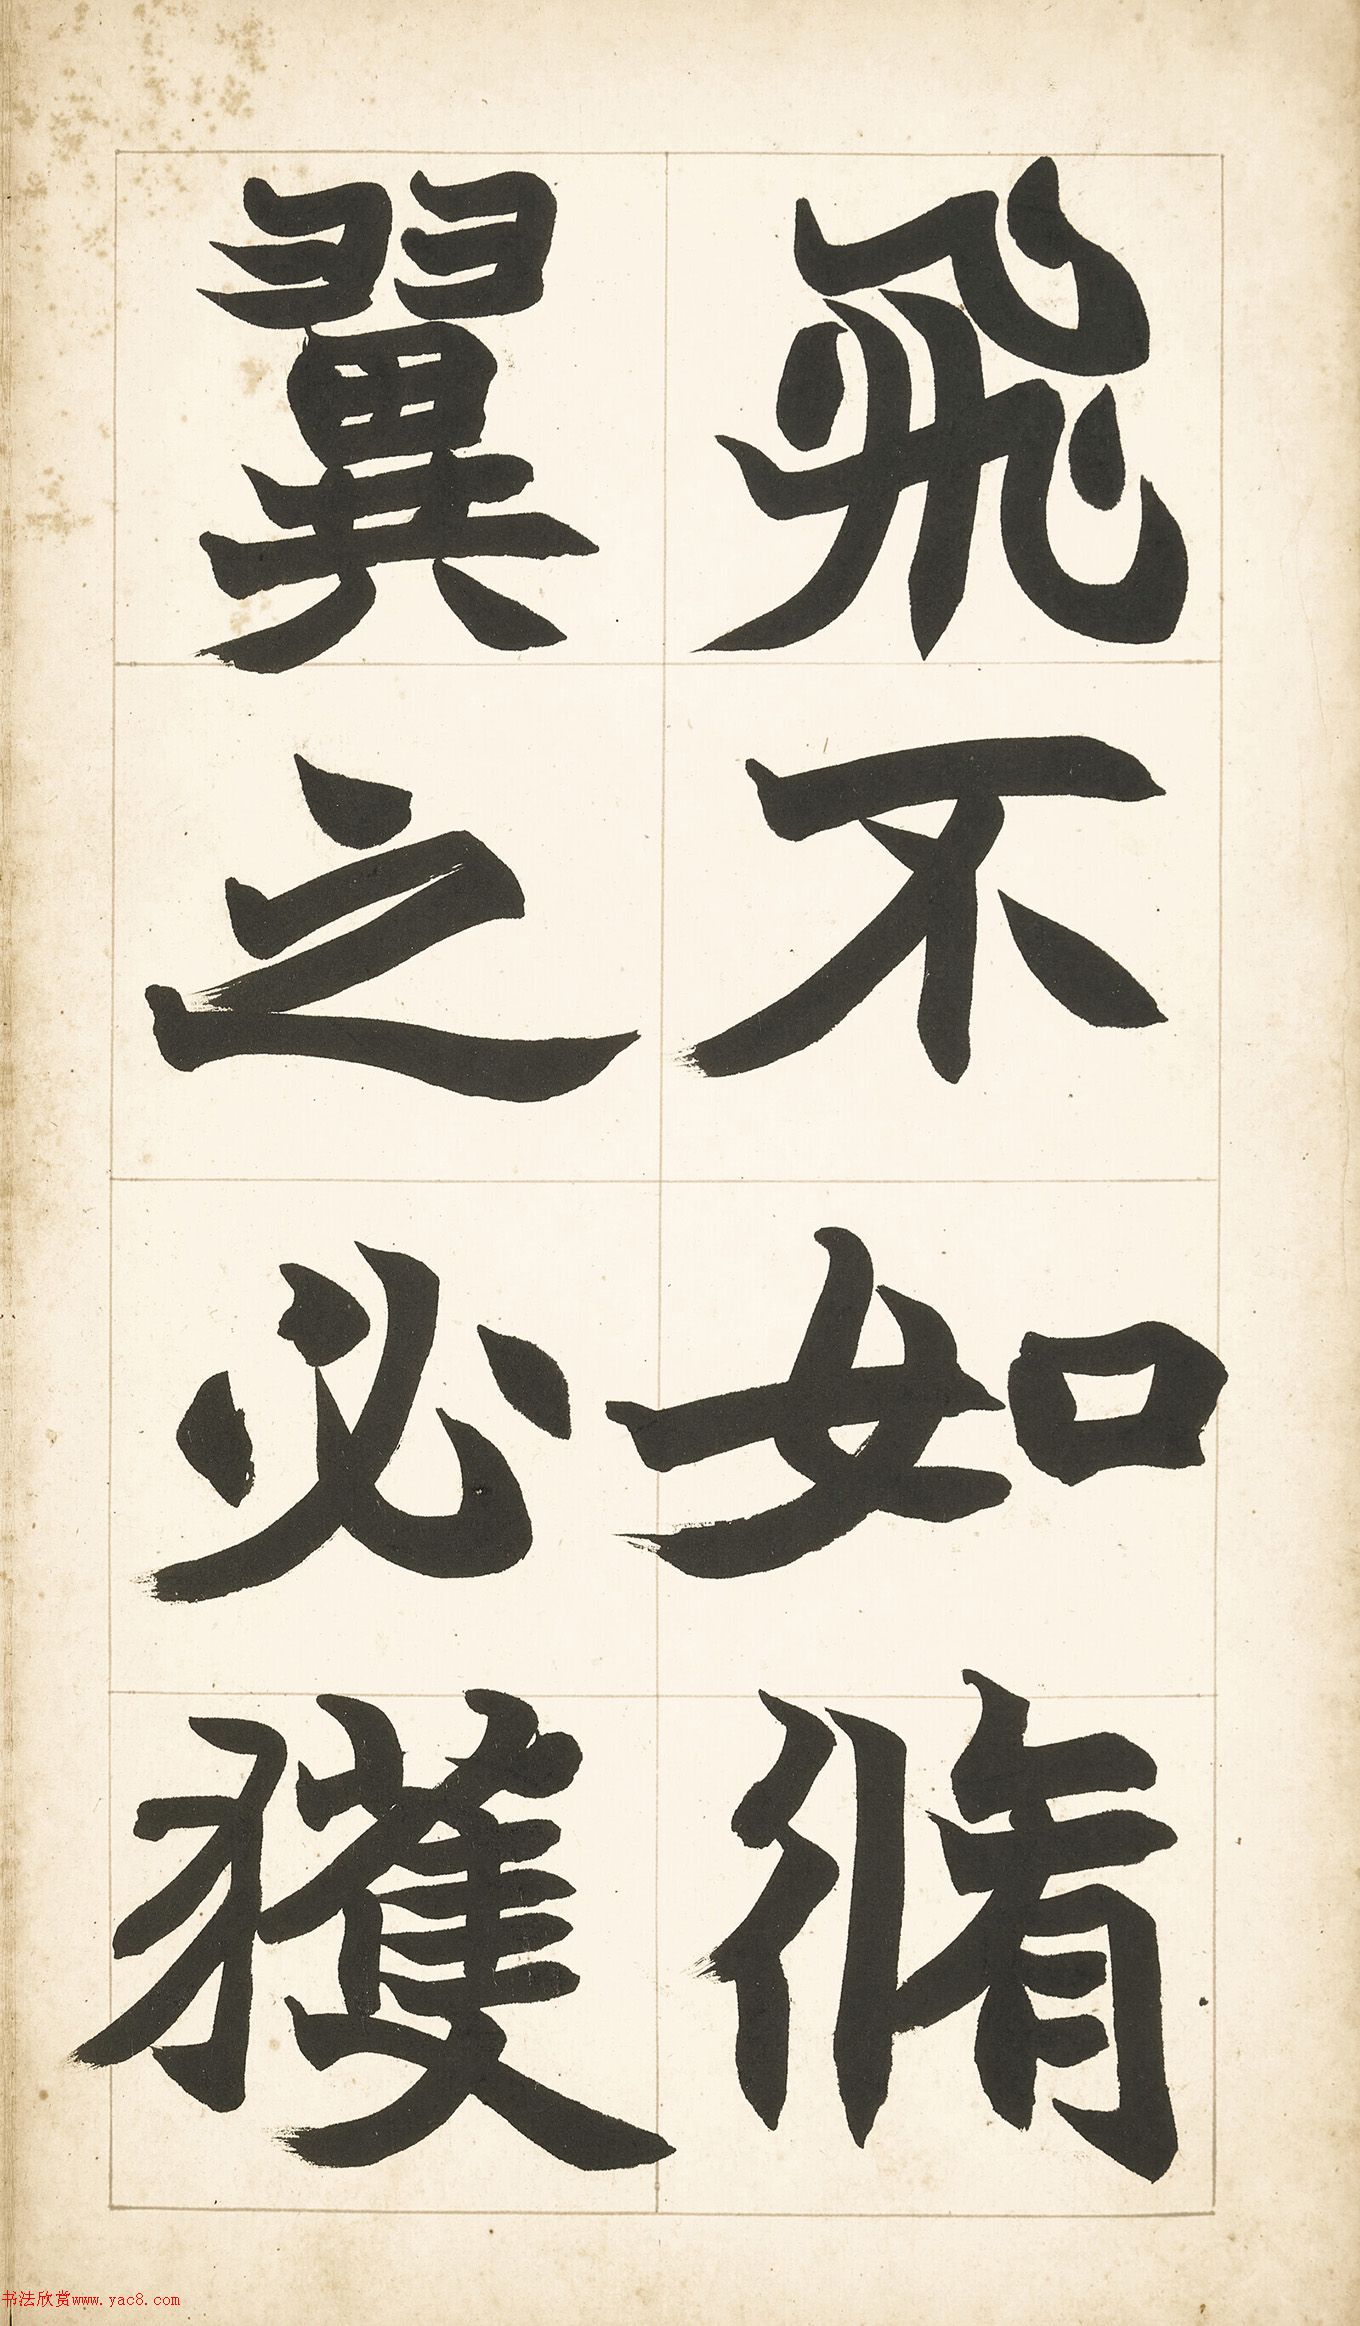 飛不如脩
翼之必獲
书法欣赏www.yac8.com